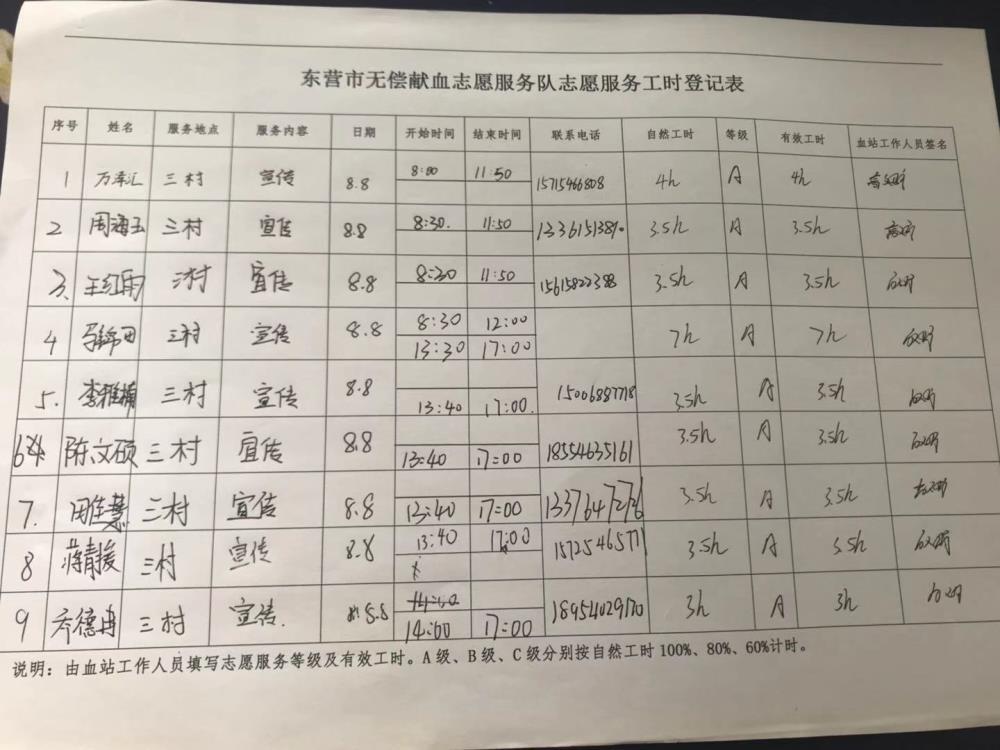 东营市无偿献血志愿服务队志愿服务工时登记表
序号 姓名 服务地点 服务内容 日期 开始时间 结束时间 联系电话 自然工时 等级 有效工时 血站工作人员签名
1 万泽汇 三村 宣传 8.8 8:00 11:50 15715466808 4h A 4h
2 周海玉 三村 宣传 8.8 8:30. 11:50 3.5h A 3.5h
3. 王红雨 三村 宣传 8.8 8:30 11:50 3.5h A 3.5h
4 三村 宣传 8.8 8:30 12:00 7h A 7h
13:30 17:00
5. 李雅楠 三村 宣传 8.8 13:40 17:00. 15006887718 3.5h A 3.5h
6 陈文硕 三村 宣传 8.8 13:40 17:00 18554635161 3.5h A 3.5h
7. 田佳慧 三村 宣传 8.8 13:40 17:00 13376472726 3.5h A 3.5h
8 三村 宣传 8.8 13:40 17:00 15725465771 3.5h A 3.5h
9 乔德冉 三村 宣传. 8.8 14:00 17:00 18954029170 3h A 3h
说明：由血站工作人员填写志愿服务等级及有效工时。A级、B级、C级分别按自然工时100%、80%、60%计时。